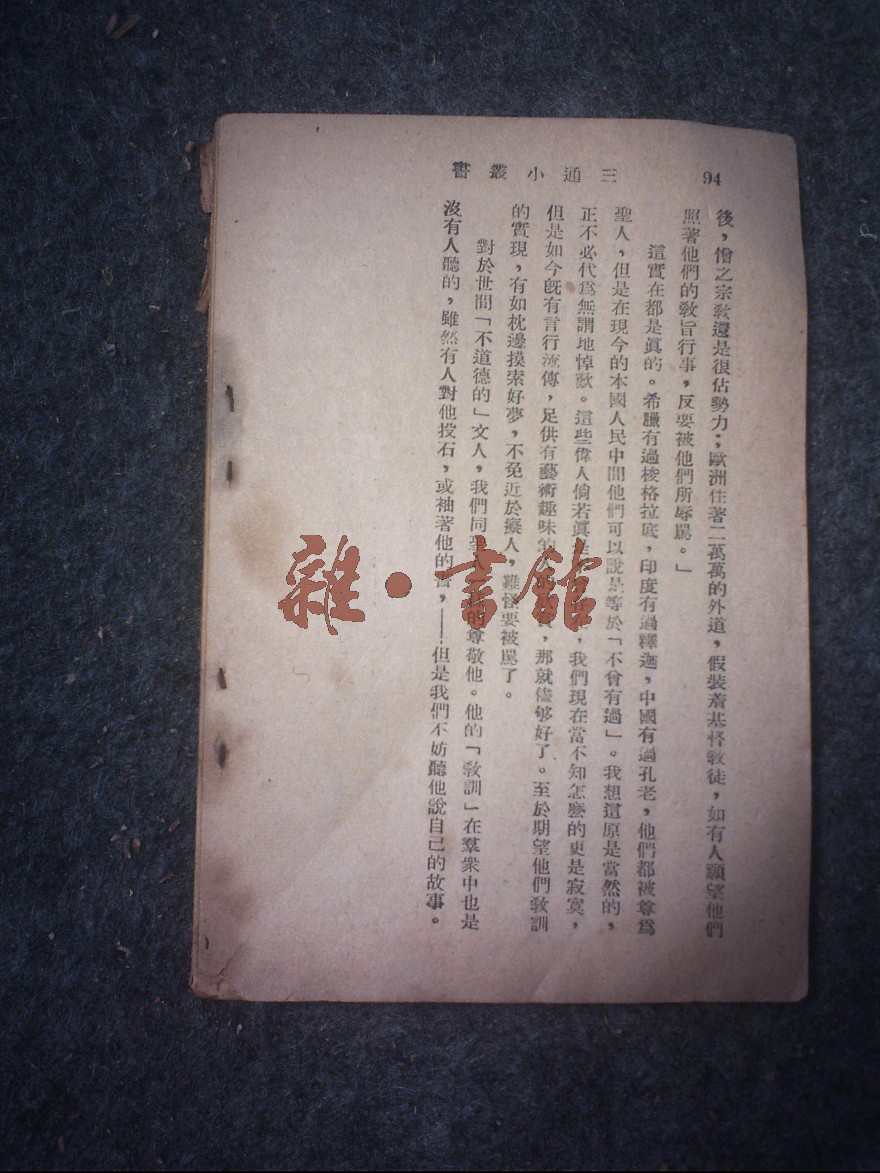 94
三通小叢書
後，僧之宗敎還是很佔勢力；歐洲住著二萬萬的外道，假裝着基督敎徒，如有人願望他們
照著他們的敎旨行事，反要被他們所辱罵。」
這實在都是眞的。希臘有過梭格拉底，印度有過釋迦，中國有過孔老，他們都被尊爲
聖人，但是在現今的本國人民中間他們可以說是等於「不曾有過」。我想這原是當然的，
正不必代爲無謂地悼歎。這些偉人倘若眞，我們現在當不知怎麽的更是寂寞，
但是如今旣有言行流傳，足供有藝術趣味的，那就儘够好了。至於期望他們敎訓
的實現，有如枕邊摸索好夢，不免近於癡人，難怪要被罵了。
對於世間「不道德的」文人，我們同聖的尊敬他。他的「敎訓」在羣衆中也是
沒有人聽的，雖然有人對他投石，或袖著他的書，——但是我們不妨聽他說自己的故事。
雜·書館